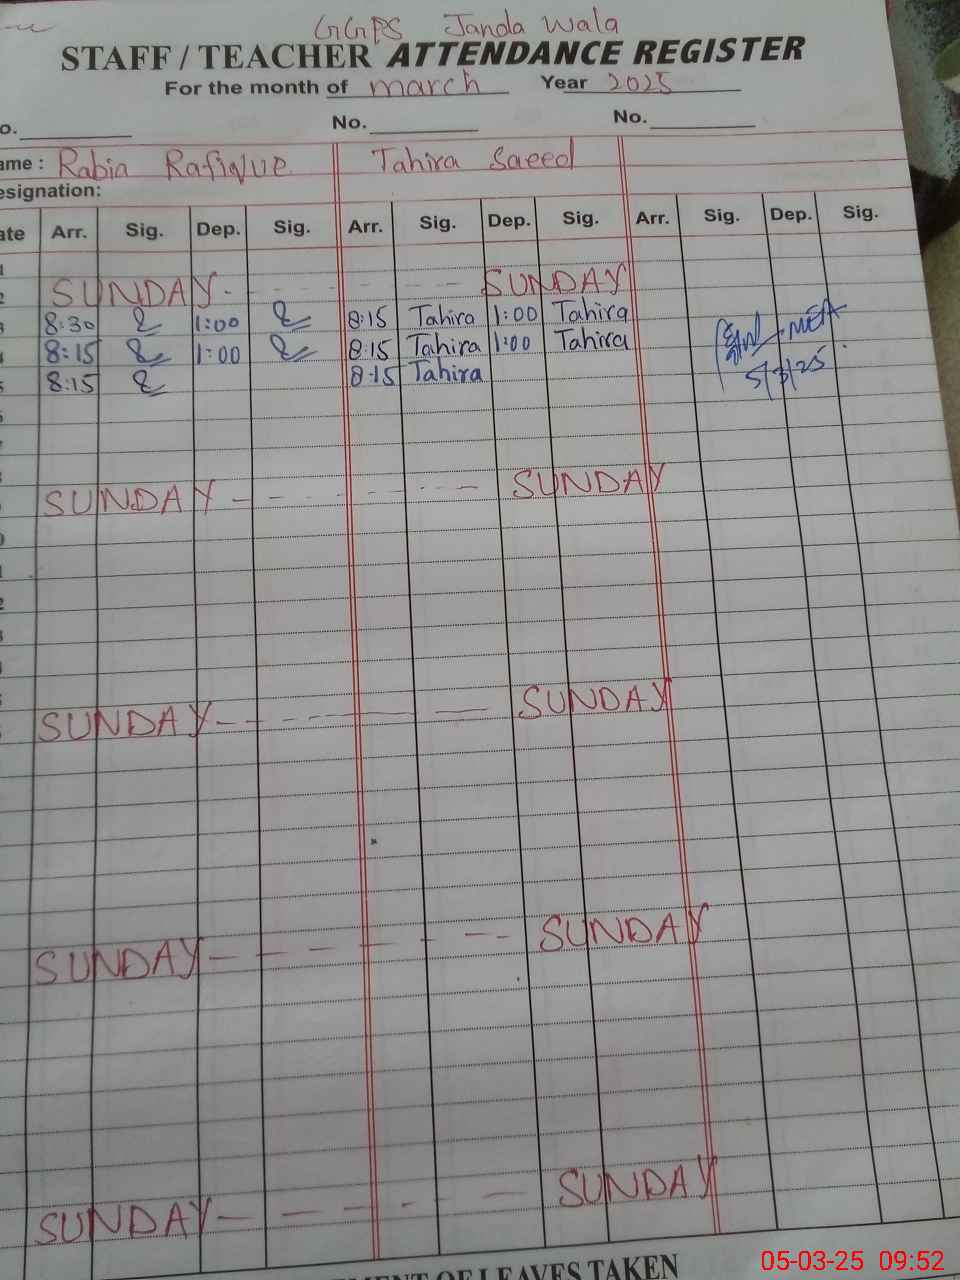 GGPS Janda Wala
STAFF / TEACHER ATTENDANCE REGISTER
For the month of march Year 2025
o. No. No.
ame : Rabia Rafique Tahira Saeed
esignation:
ate Arr. Sig. Dep. Sig. Arr. Sig. Dep. Sig. Arr. Sig. Dep. Sig.
1
2 SUNDAY SUNDAY
3 8:30 1:00 8:15 Tahira 1:00 Tahira
4 8:15 1:00 8:15 Tahira 1:00 Tahira
5 8:15 8:15 Tahira
MEA
5/3/25
SUNDAY SUNDAY
SUNDAY SUNDAY
SUNDAY SUNDAY
SUNDAY SUNDAY
MENT OF LEAVES TAKEN
05-03-25 09:52